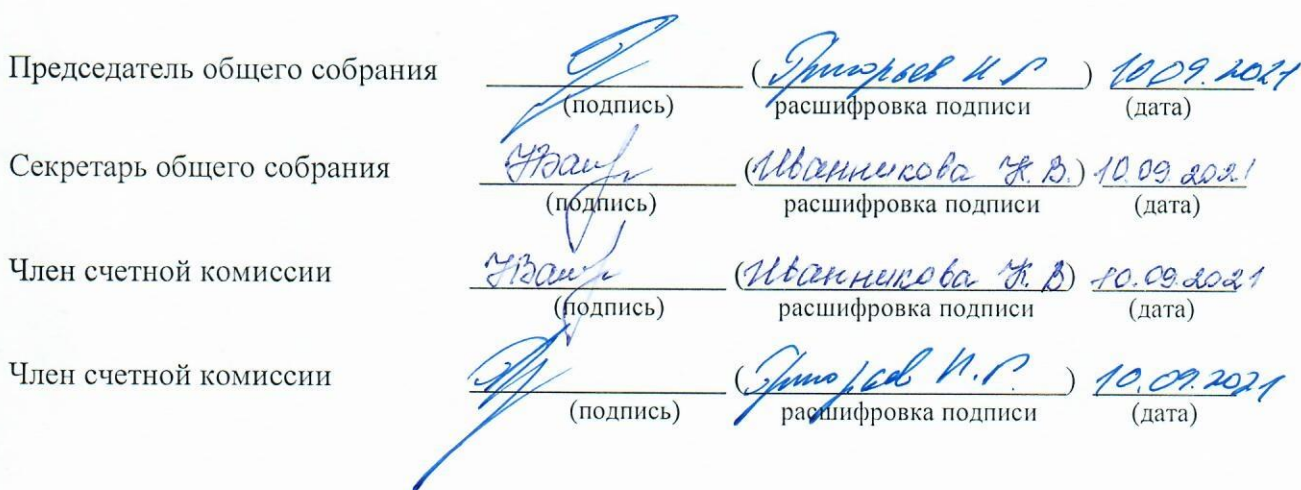 Председатель общего собрания (Григорьев И Г) 10 09. 2021
(подпись) расшифровка подписи (дата)
Секретарь общего собрания (Иванникова Н. В.) 10.09.2021
(подпись) расшифровка подписи (дата)
Член счетной комиссии (Иванникова Н. В) 10.09.2021
(подпись) расшифровка подписи (дата)
Член счетной комиссии (Григорьев И. Г. ) 10.09.2021
(подпись) расшифровка подписи (дата)